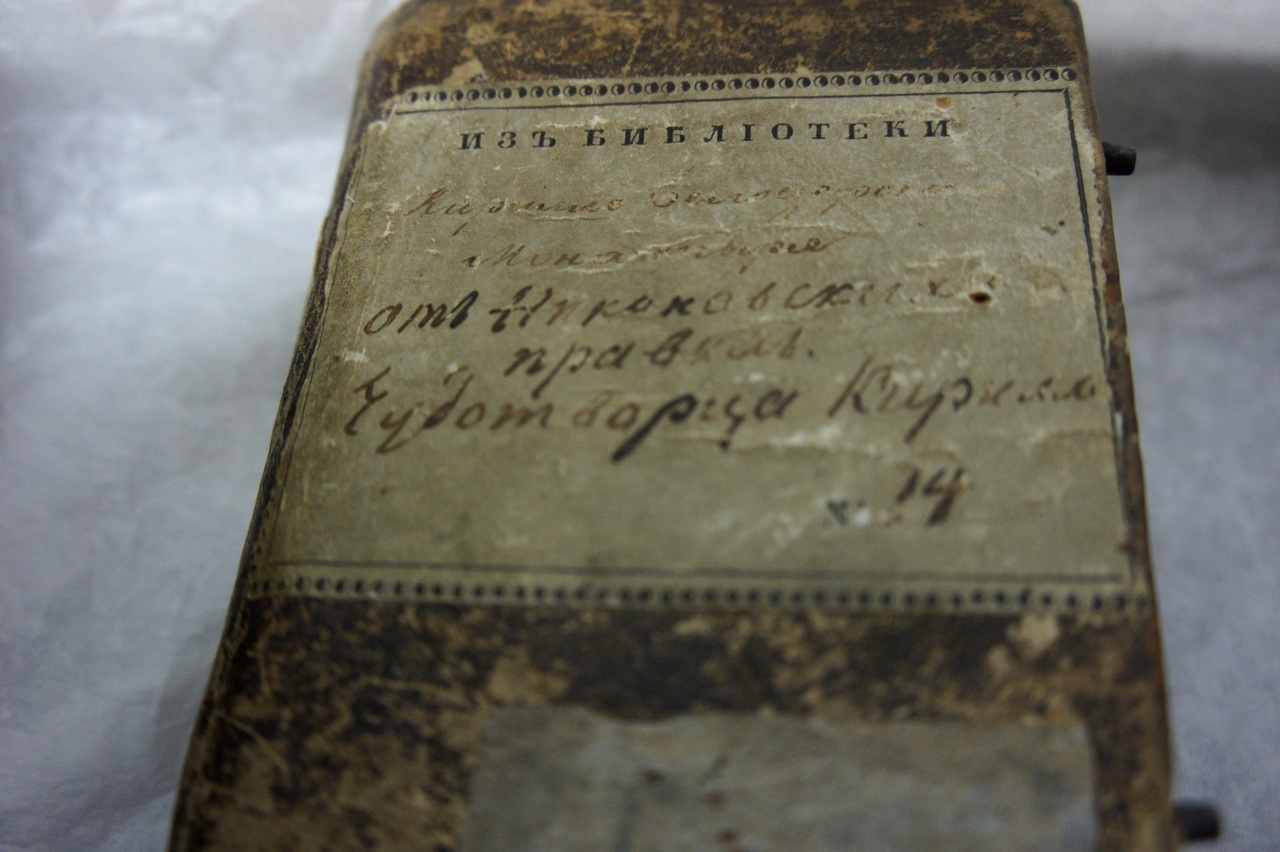 ИЗЪ БИБЛІОТЕКИ
Кирилло Белозерск
Монастыря
отъ Никоновскихъ
правилъ.
Чудотворца Кирилл
№ 14